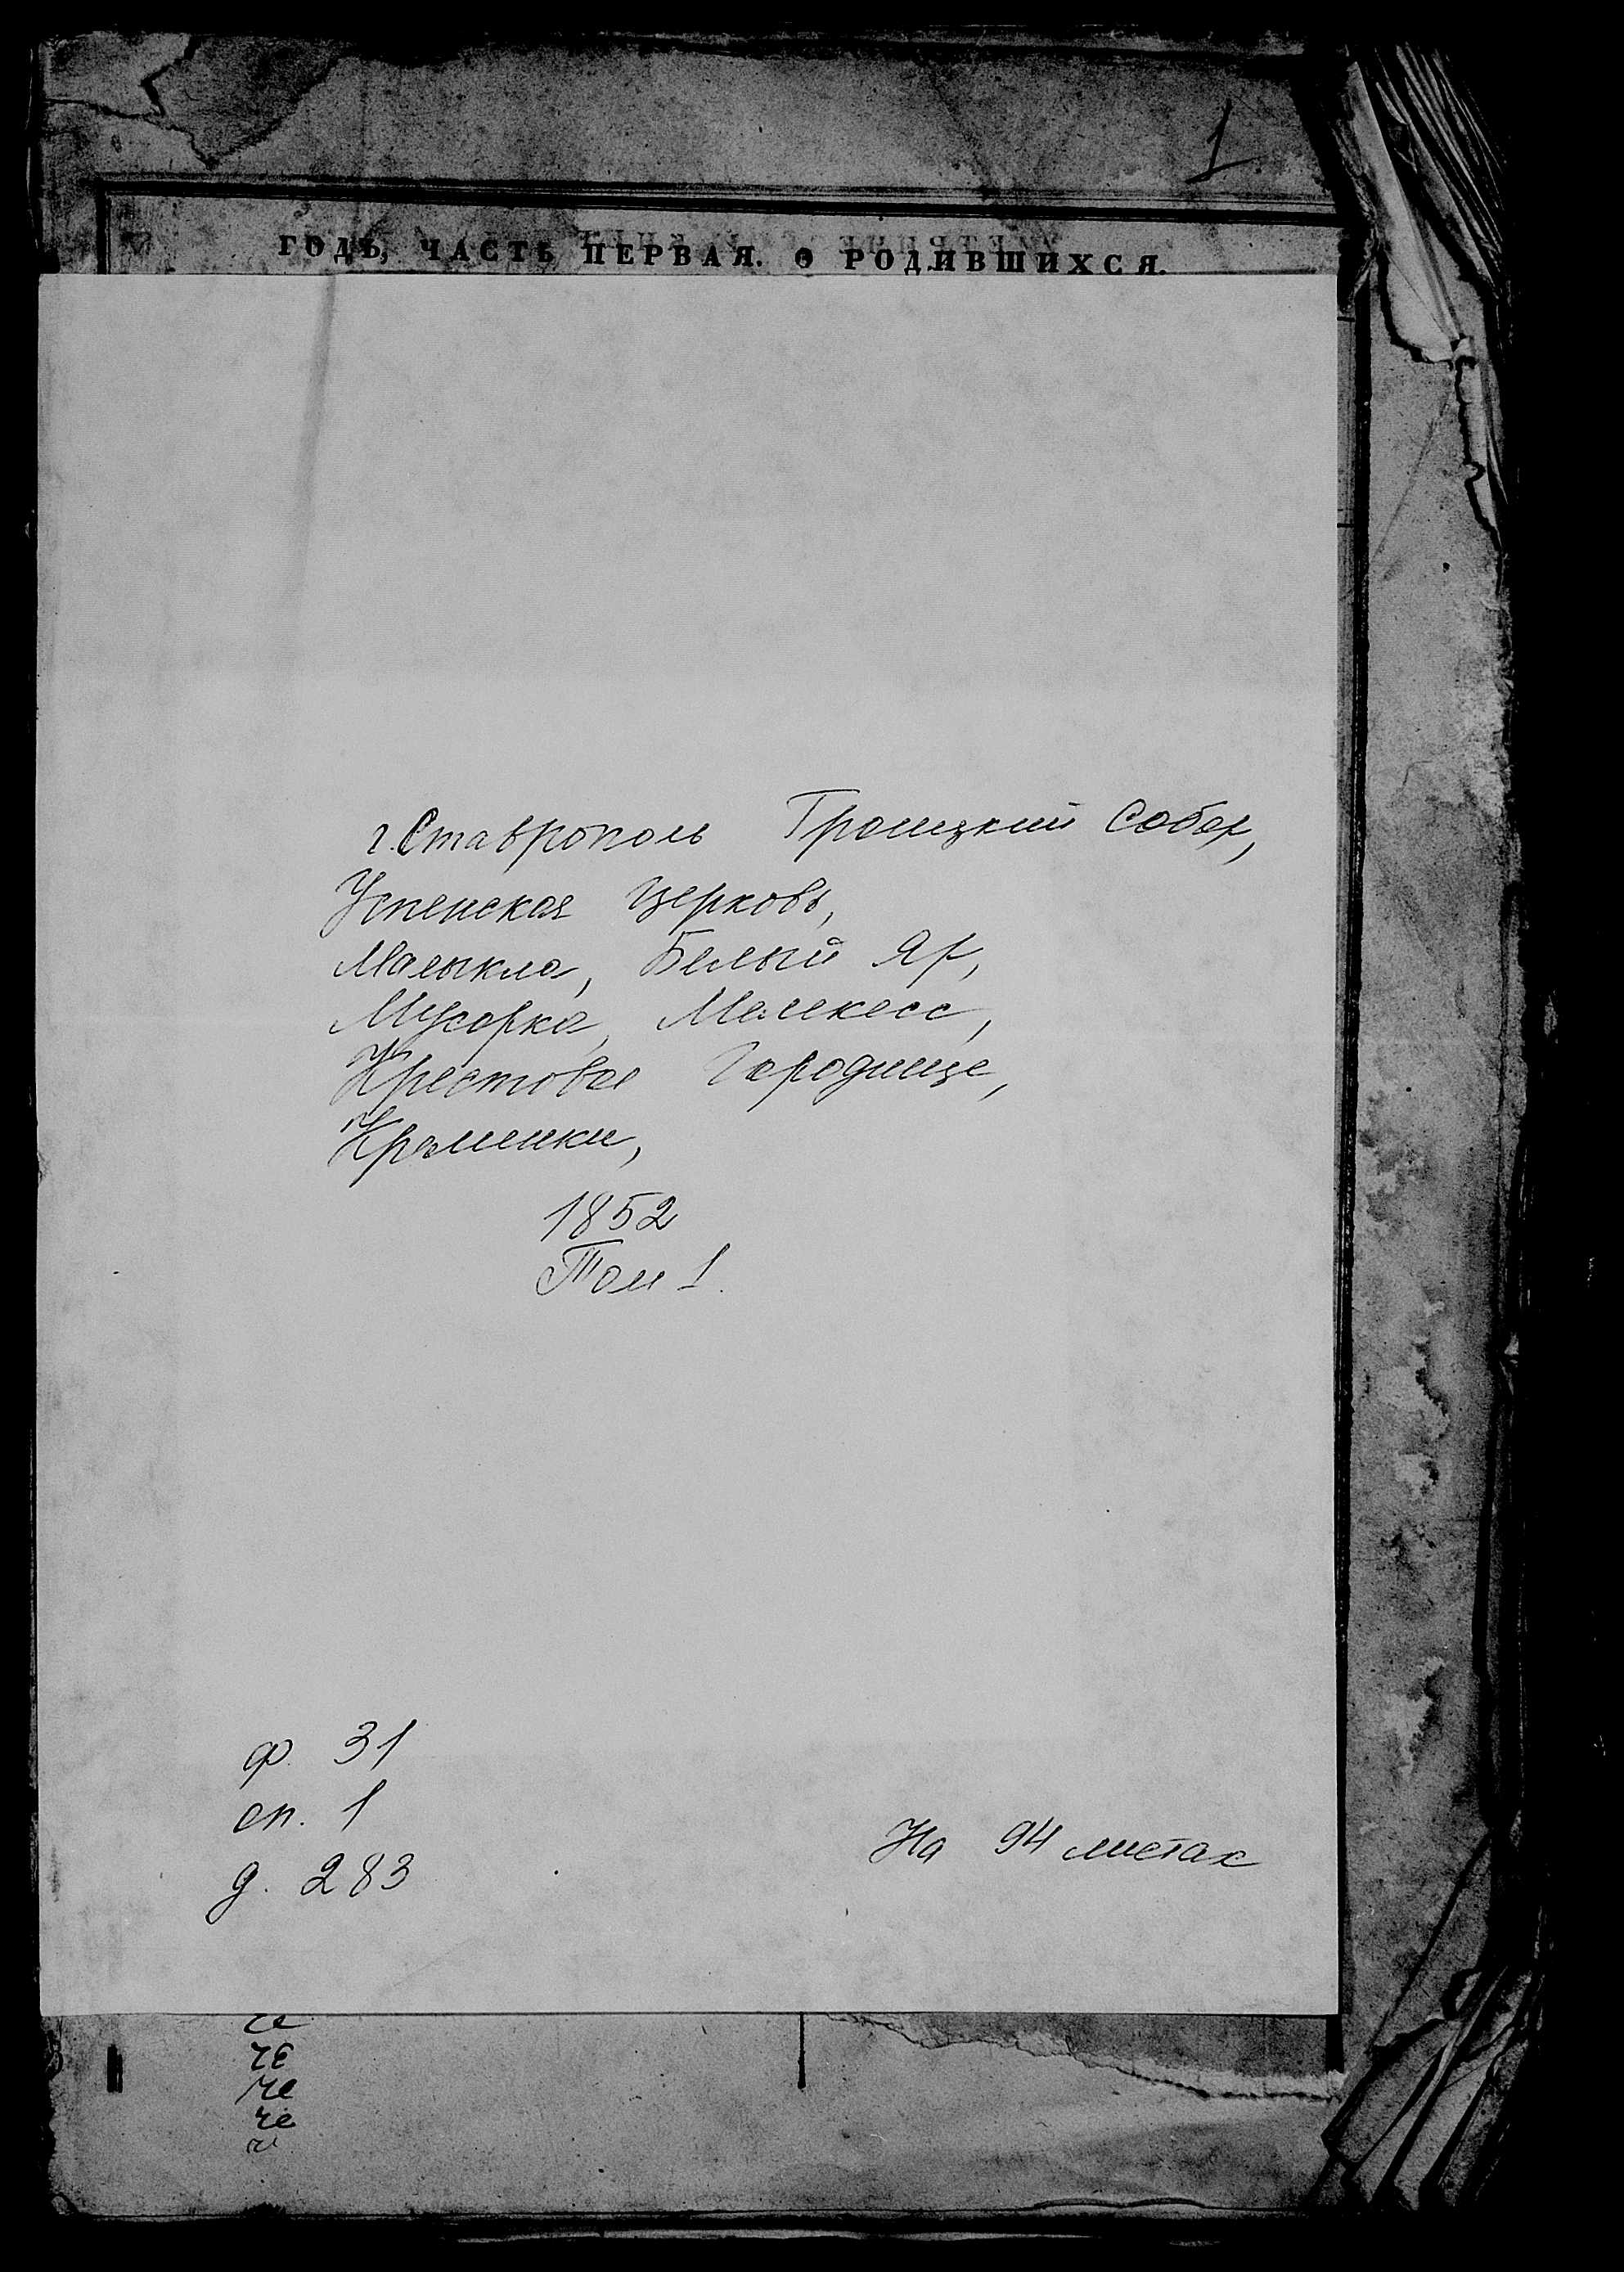 1
ГОДЪ, ЧАСТЬ ПЕРВАЯ. О РОДИВШИХСЯ.
г. Ставрополь Троицкий Собор,
Успенская Церковь,
Малыкла, Белый Яр,
Мусорка, Мелекесс,
Крестовое Городище,
Кременки,
1852
Том 1.
ф. 31
оп. 1
д. 283
На 94 листах
че
че
че